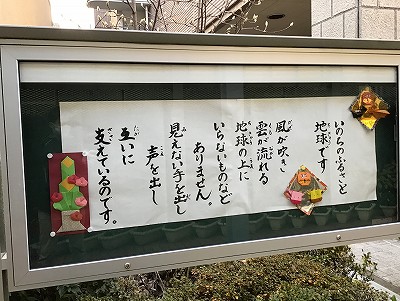 いのちのふるさと
地球です
風が吹き
雲が流れる
地球の上に
いらないものなど
ありません。
見えない手を出し
声を出し
互いに
支えているのです。